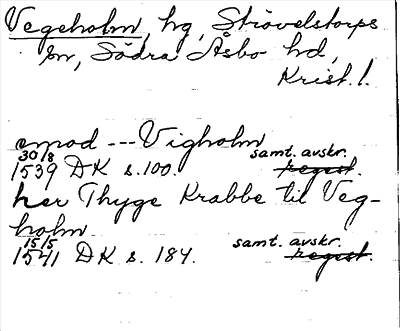 Vegeholm, hg, Strövelstorps
sn, Södra Åsbo hd,
Krist. l.
emod --- Vigholm
30/8 1539 DK s. 100. samt. avskr. regest.
her Thyge Krabbe til Veg-
holm
15/5 1541 DK s. 184. samt. avskr. regest.